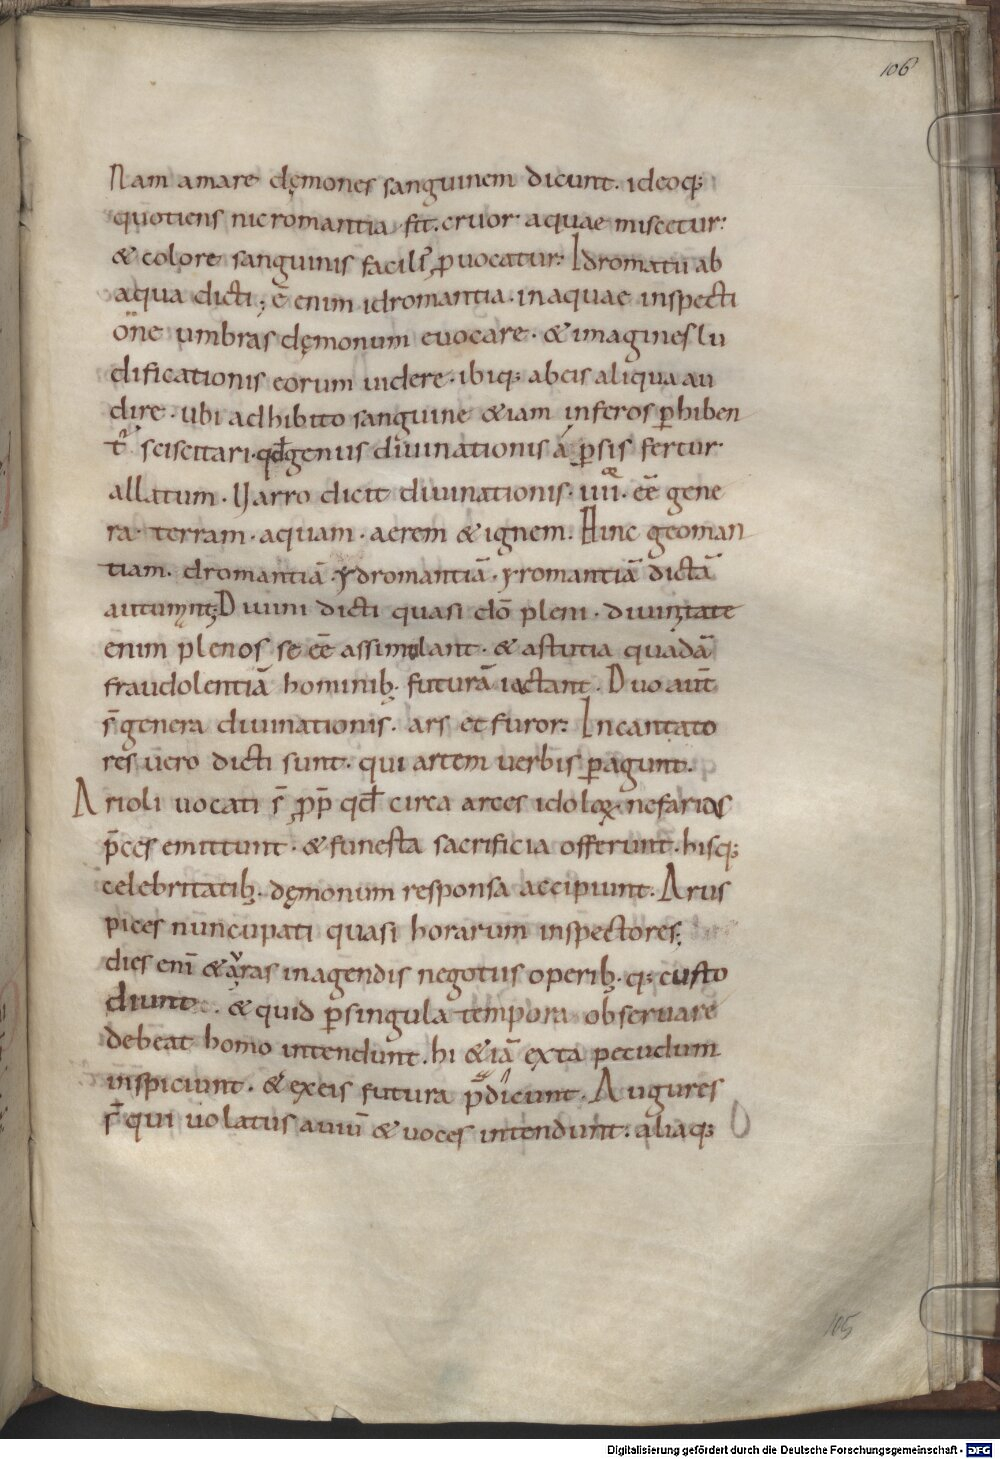 106
Nam amare dęmones sanguinem dicunt. ideoq;
quotiens nicromantia fit. cruor aquae miscetur.
& colore sanguinis facilꝰ ꝓuocatur. Idromatii ab
aqua dicti; ē enim idromantia. in aquae inspecti
one umbras dęmonum euocare. & imagines lu
dificationis eorum uidere. ibiq; ab eis aliqua au
dire. ubi adhibito sanguine &iam inferos ꝑhiben
t᷑ sciscitari. qđ genus diuinationis a ꝑsis fertur
allatum. Uarro dicit diuinationis. iiii. eē gene
ra. terram. aquam. aerem & ignem. Hinc geoman
tiam. dromantiā. ydromantiā. yromantiā dictā
autumnt; Diuini dicti quasi dō pleni. diuintate
enim plenos se eē assimolant. & astutia quadā
fraudolentiā hominib; futurā iactant. Duo aut̄
s̄ genera diuinationis. ars et furor. Incantato
res uero dicti sunt. qui artem uerbis ꝑagunt.
Arioli uocati s̄ ꝓp̄ qđ circa arces idoloꝝ. nefarias
p̄ces emittunt. & funesta sacrificia offerunt. hisq;
celebritatib; dęmonum responsa accipiunt. Arus
pices nuncupati quasi horarum inspectores;
dies eni̅ & aras in agendis negotiis operib; q; custo
diunt. & quid ꝑ singula tempora obseruare
debeat homo intendunt. hi &iā exta pecudum
inspiciunt. & ex eis futura p̄dicunt. Augures
s̄ qui uolatus auiū & uoces intendunt. aliaq;
105
Digitalisierung gefördert durch die Deutsche Forschungsgemeinschaft - DFG